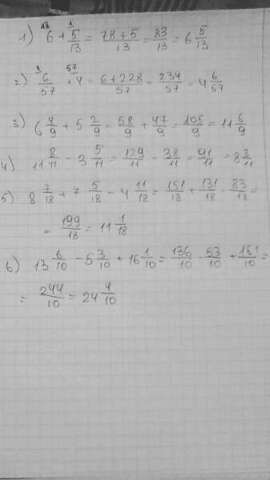 1) 6 + 5/13 = 78+5/13 = 83/13 = 6 5/13
2) 6/57 + 4 = 6+228/57 = 234/57 = 4 6/57
3) 6 4/9 + 5 2/9 = 58/9 + 47/9 = 105/9 = 11 6/9
4) 11 8/11 - 3 5/11 = 129/11 - 38/11 = 91/11 = 8 3/11
5) 8 7/18 + 7 5/18 - 4 11/18 = 151/18 + 131/18 - 83/18 =
= 199/18 = 11 1/18
6) 13 6/10 - 5 3/10 + 16 1/10 = 136/10 - 53/10 + 161/10 =
= 244/10 = 24 4/10